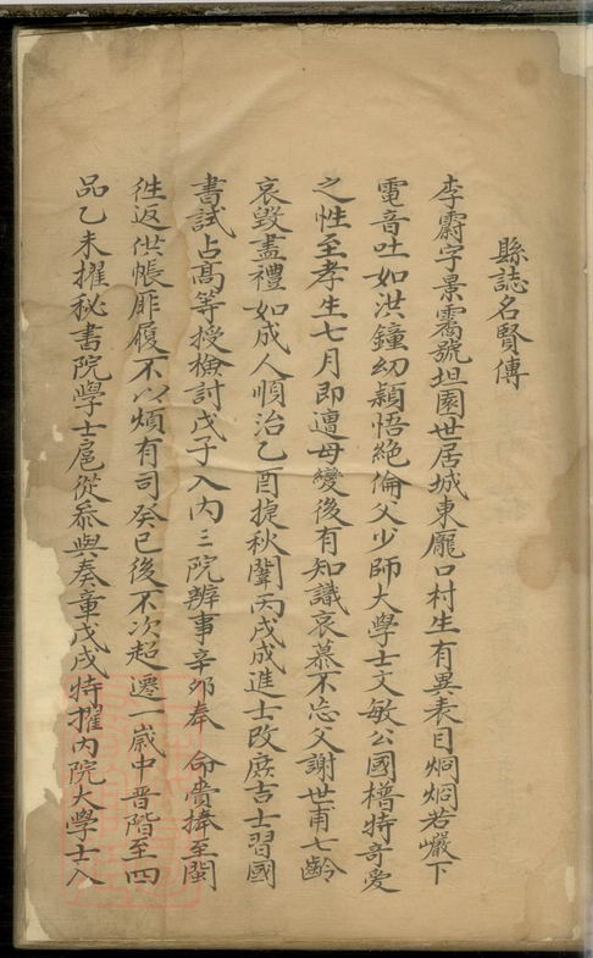 縣誌名賢傳
李霨字景霱號坦園世居城東龐口村生有異表目炯炯若巖下
電音吐如洪鐘幼穎悟絶倫父少師大學士文敏公國𣚴特奇愛
之性至孝生七月即遭母變後有知識哀慕不忘父謝世甫七齡
哀毀盡禮如成人順治乙酉捷秋闈丙戌成進士改庶吉士習國
書試占髙等授檢討戊子入内三院辦事辛卯奉 命賫捧至閩
徃返供帳屝履不以煩有司癸巳後不次超遷一歲中晋階至四
品乙未擢秘書院學士扈從叅與奏章戊戌特擢内院大學士入